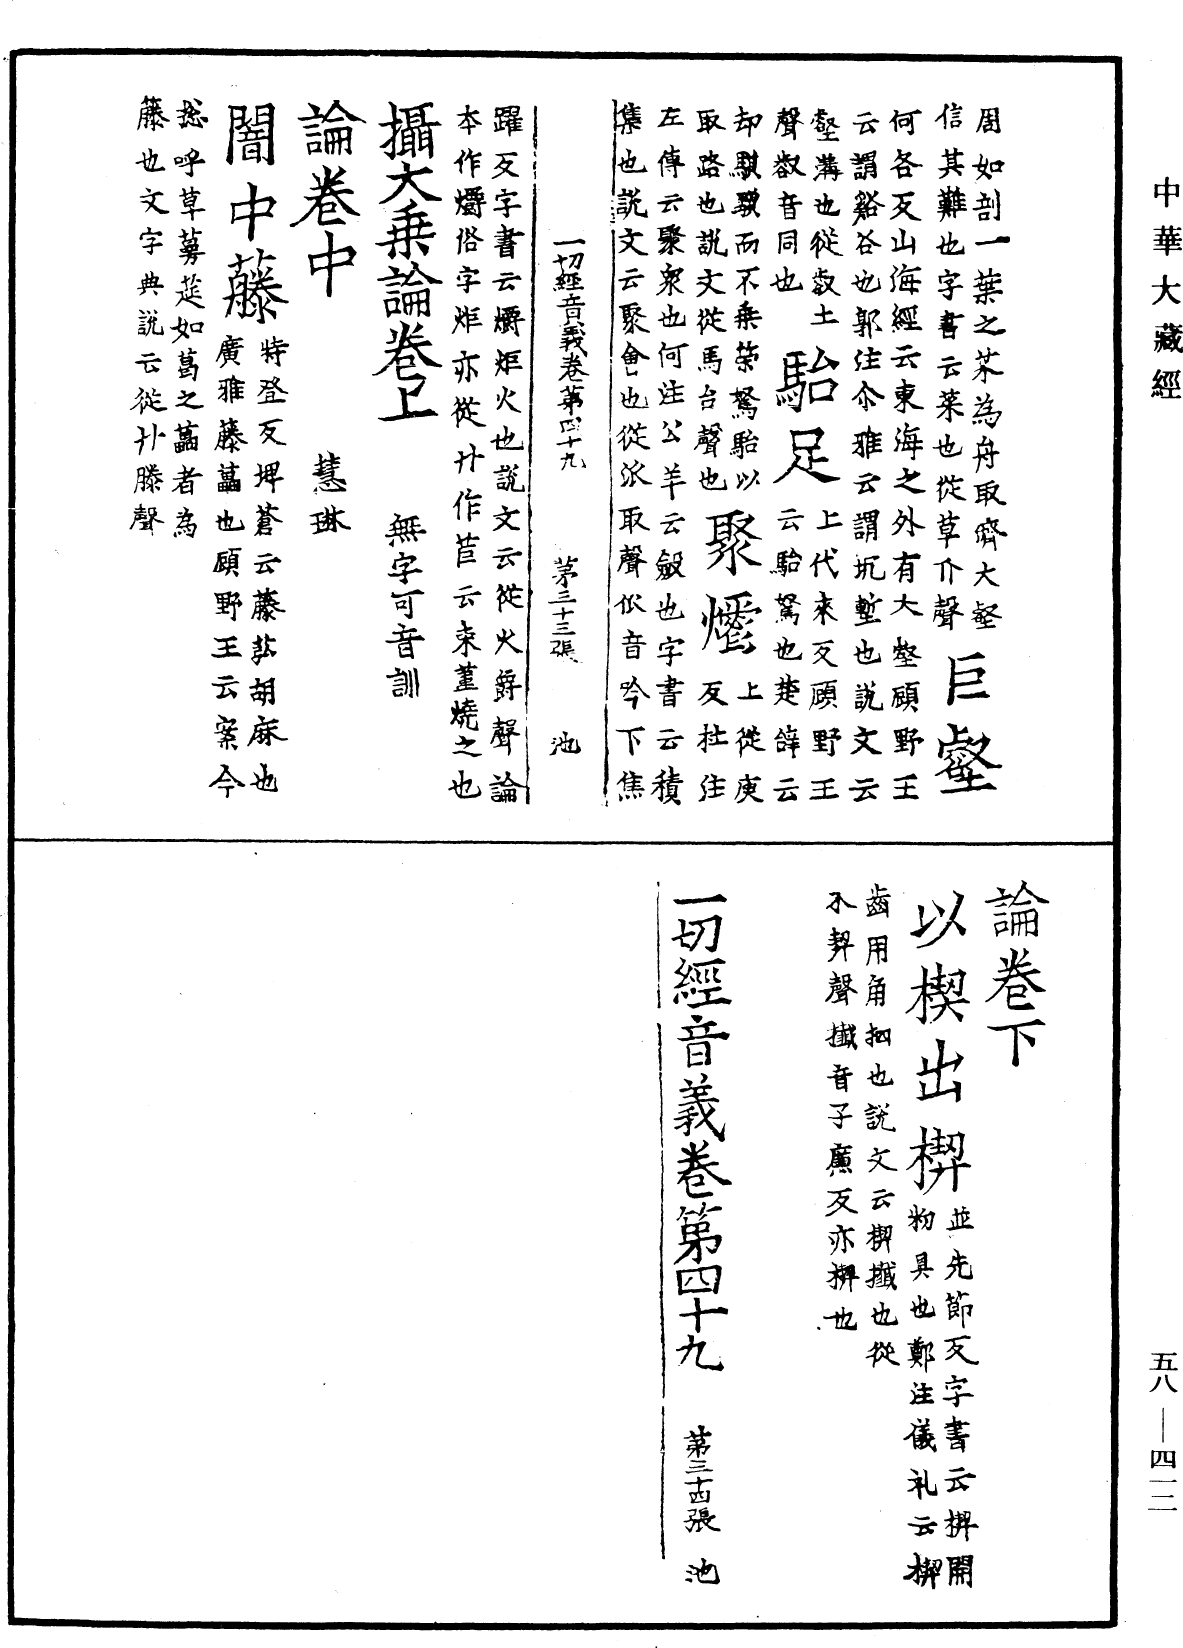 中華大藏經
周如剖一葉之芥為舟取濟大壑
信其難也字書云菜也從草介聲
巨壑
何各反山海經云東海之外有大壑顧野王
云謂谿谷也郭注尒雅云謂坑塹也說文云
壑溝也從㕡土
聲㕡音同也
駘足
上代來反顧野王
云駘駑也楚辭云
却騏驥而不乗策駑駘以
取路也說文從馬台聲也
聚㸌
上從庾
反杜注
左傳云聚衆也何注公羊云斂也字書云積
集也說文云聚會也從㐺取聲㐺音吟下焦
一切經音義卷第四十九 茅三十三張 池
躍反字書云爝炬火也說文云從火爵聲論
本作爝俗字炬亦從廾作苣云束葦燒之也
攝大乗論卷上 無字可音訓
論卷中 慧琳
闇中藤
特登反埤蒼云藤弘胡麻也
廣雅藤藟也顧野王云案今
惣呼草蔓莚如葛之藟者為
藤也文字典說云從廾滕聲
論卷下
以楔出楔
並先節反字書云楔開
物具也鄭注儀礼云楔
齒用角柶也說文云楔攕也從
木契聲攕音子廉反亦楔也
一切經音義卷第四十九 第三十四張 池
五八—四一二